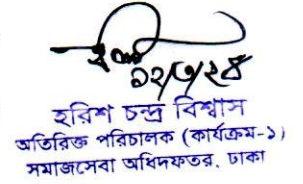 ১২/৩/২৪
হরিশ চন্দ্র বিশ্বাস
অতিরিক্ত পরিচালক (কার্যক্রম-১)
সমাজসেবা অধিদফতর, ঢাকা